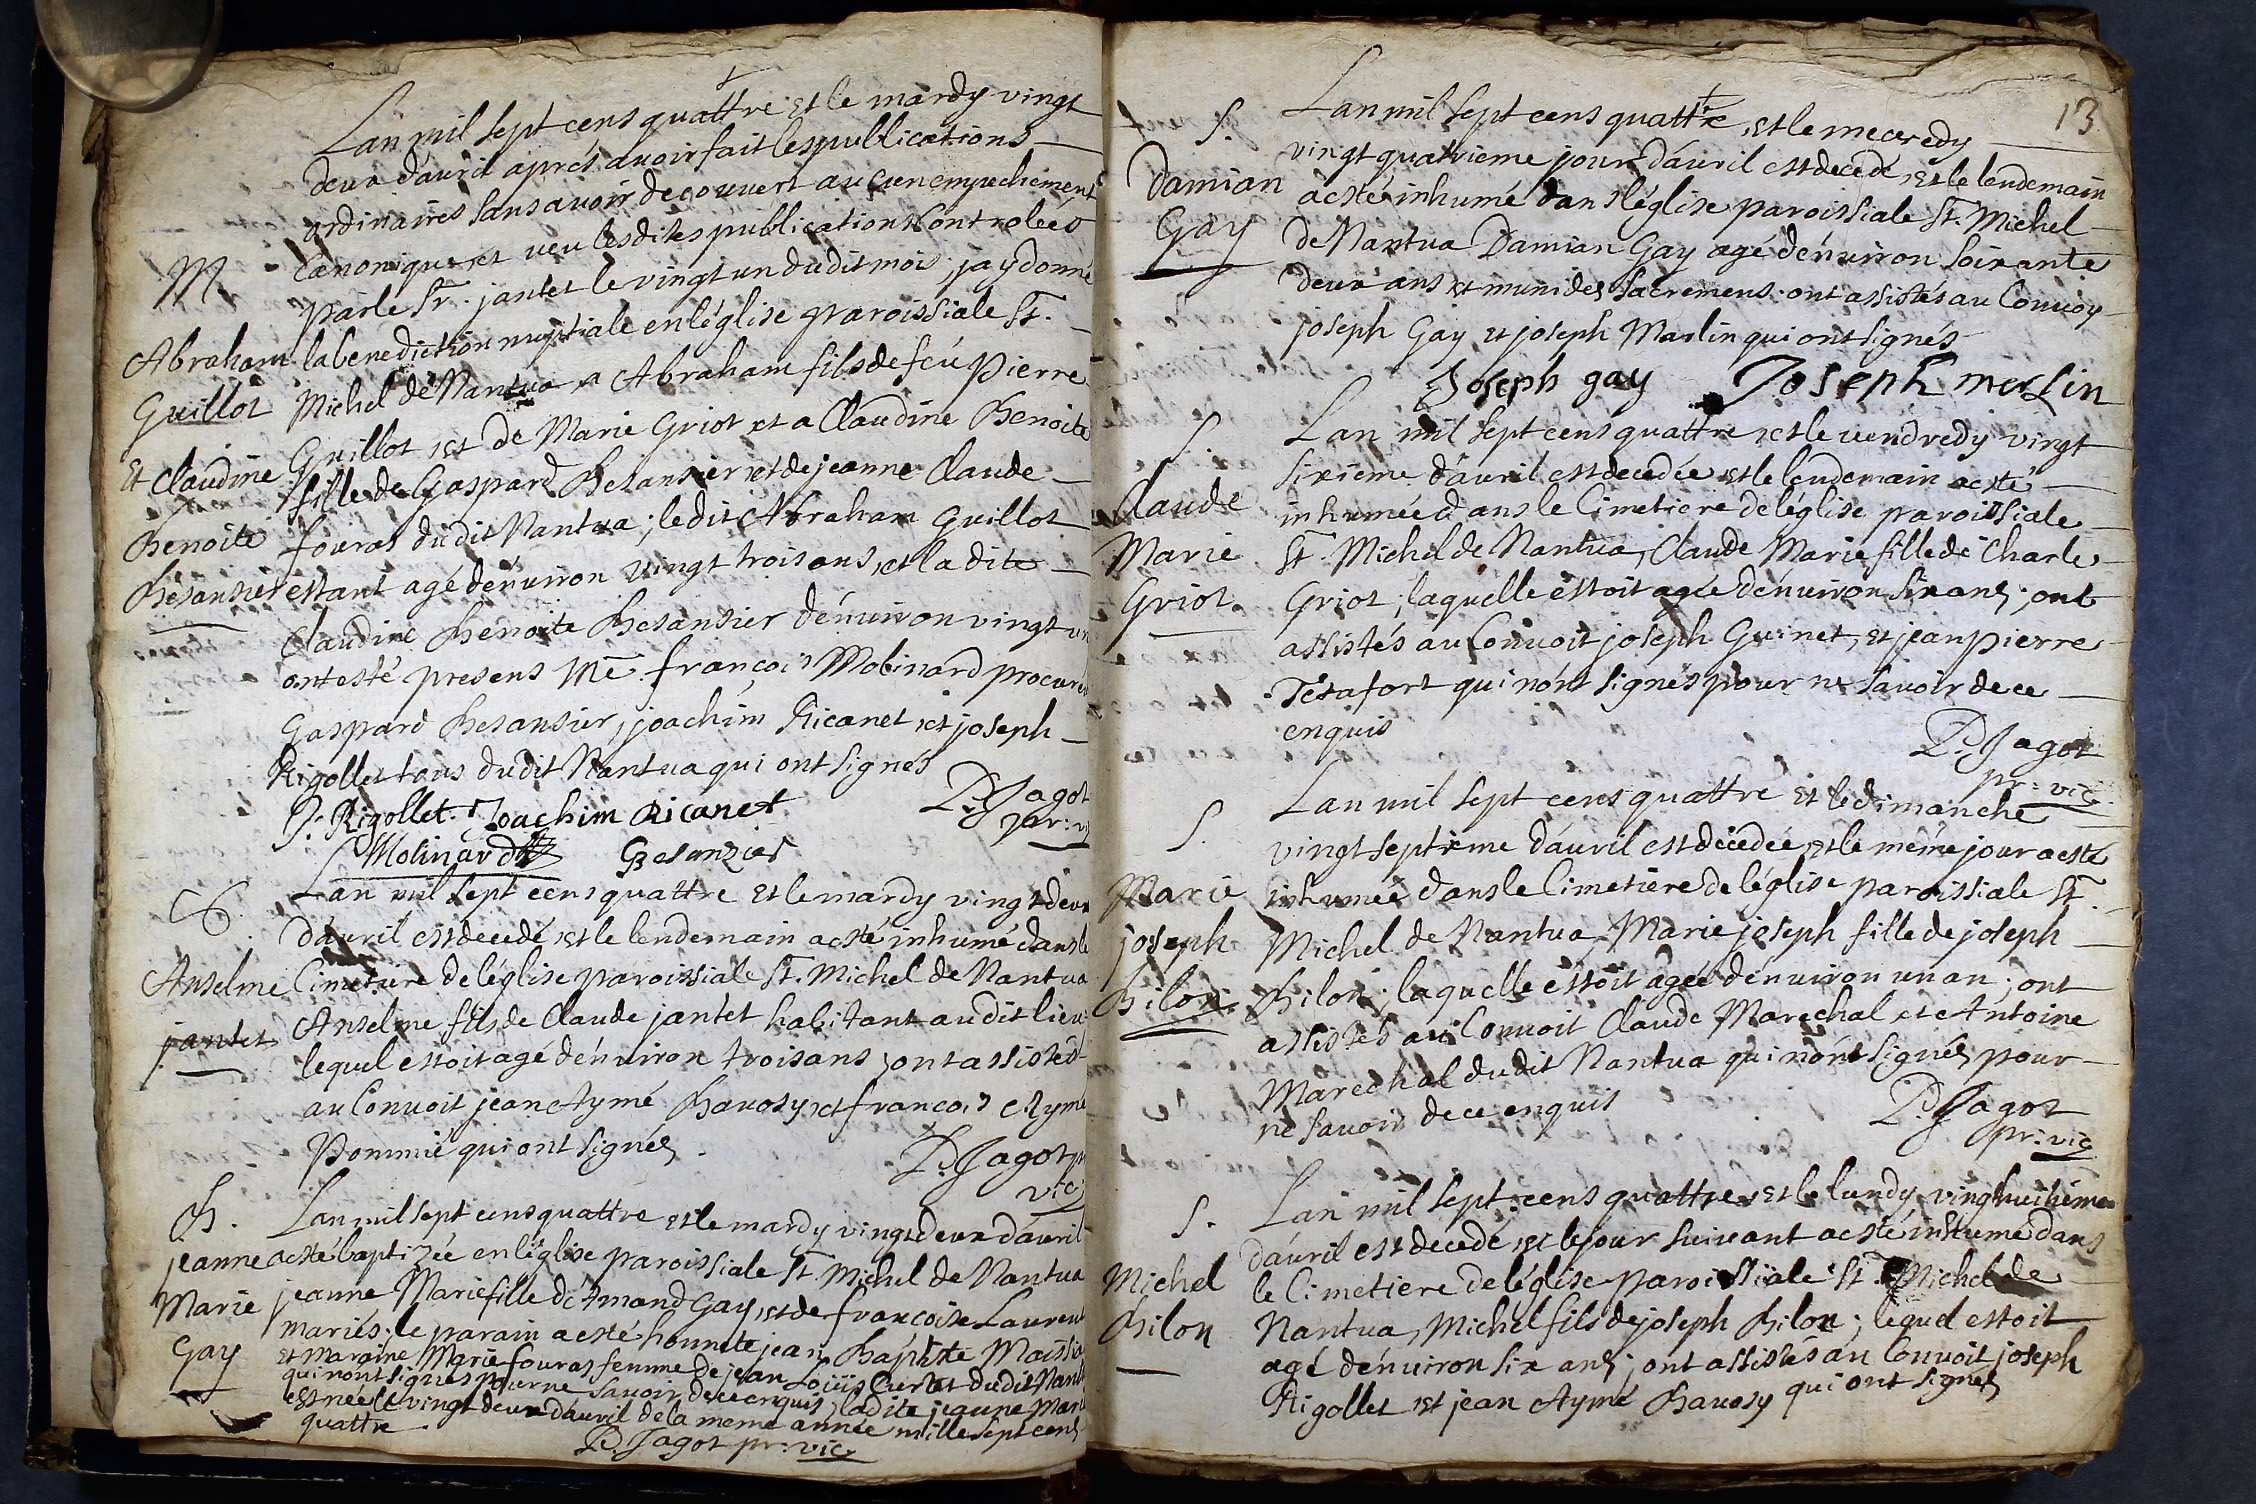 Lan mil sept cens quattre et le mardy vingt
deux dáuril aprés auoir fait les publications
ordinaires sans auoir decouuert aucun empechement
M
Canonique et veu lesdites publications Controleés
par le Sr. jantet le vingt un dudit moi jay donné
Abraham
Guillot
Et Claudine
Benoite
Besansier
la benediction nuptiale en léglise paroissiale St.
Michel de Nantua a Abraham fils de feu Pierre
Guillot et de Marie Griot et a Claudine Benoite
fille de Gaspard Besansier et de jeanne Claude
fouras dudit Nantua; ledit Abraham Guillot
estant agé dénuiron vingt trois ans, et la dite
Claudine Benoite Besansier dénuiron vingt un
ont esté presens Me. françois Molinard procureur
Gaspard Besansier, joachim Ricanet et joseph
Rigollet tous dudit Nantua qui ont signés
J. Rigollet. Joachim Ricanet
P. Jagot
pr: vi
Molinard GBesanzier
S.
Anselme
jantet
Lan mil sept cens quattre et le mardy vingt deux
dáuril est decedé et le lendemain a esté inhumé dans le
Cimetiere de léglise paroissiale St. Michel de Nantua
Anselme fils de Claude jantet habitant audit lieu
lequel estoit agé dénuiron trois ans ; ont assistés
au Conuoit jean Aymé Bauosy et francois Aymé
Pommié qui ont signés.
P. Jagot pr
vic
B.
jeanne
Marie
Gay
Lan mil sept cens quattre et le mardy vingt deux dáuril
a esté baptizée en léglise paroissiale St. Michel de Nantua
jeanne Marie fille dÁmand Gay, et de françoise Laurent
mariés; le parain a esté honnete jean Baptiste Maissia
et maraine Marie fouras femme de jean Loüis Curtet dudit Nantua
qui nont signés pour ne sauoir de ce enquis, ladite jeanne Marie
est née le vingt deux dáuril de la meme année mille sept cens
quattre
P. Jagot pr: vic
13
S.
Damian
Gay
Lan mil sept cens quattre, et le mecredy
vingt quatrieme jour dáuril est decedé, et le lendemain
a esté inhumé dans léglise paroissiale St. Michel
de Nantua Damian Gay agé dénuiron soixante
deux ans et muni des sacremens. ont assistés au Conuoy
joseph Gay et joseph Marlin qui ont signés
Joseph gay Joseph merlin
S.
Claude
Marie
Griot.
Lan mil sept cens quattre, et le vendredy vingt
sixieme dáuril est decedée et le lendemain a esté
inhumée dans le Cimetiere de léglise paroissiale
St. Michel de Nantua, Claude Marie fille de Charle
Griot; laquelle estoit agée dénuiron six ans; ont
assistés au Conuoit joseph Guinet, et jean pierre
Tetafort qui nónt signés pour ne sauoir de ce
enquis
P. Jagot
pr: vic
S.
Marie
joseph
Bilon
Lan mil sept cens quattre et le dimanche
vingt septieme dáuril est décedée, et le méme jour a esté
inhumée dans le Cimetiere de léglise paroissiale St.
Michel de Nantua, Marie joseph fille de joseph
Bilon; laquelle estoit agée dénuiron un an; ont
assistés au Conuoit Claude Marechal et Antoine
Marechal dudit Nantua qui nónt signés pour
ne sauoir de ce enquis
P. Jagot
pr: vic
S.
Michel
Bilon
Lan mil sept cens quattre, et le lundy vingthuitiéme
dáuril est decedé et le jour suiuant a esté inhumé dans
le Cimetiere de léglise paroissiale St. Michel de
Nantua, Michel fils de joseph Bilon; lequel estoit
agé dénuiron six ans; ont assistés au Conuoit joseph
Rigollet et jean Aymé Bauosy qui ont signés